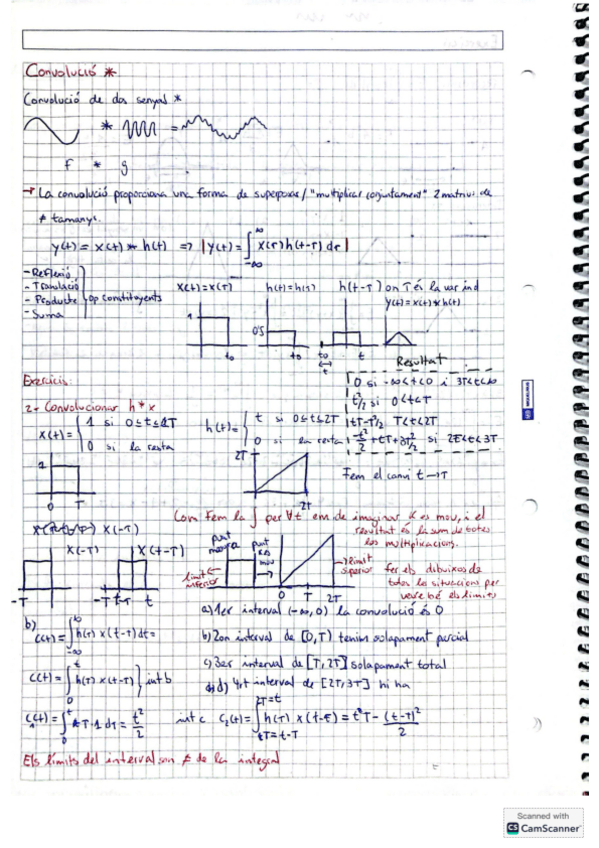 Convolució *
Convolució de dos senyal *
* =
f * g
→ La convolució proporciona una forma de superposar/"multiplicar conjuntament" 2 matrius de
≠ tamanys.
y(t) = x(t) * h(t) => |y(t) = ∫ x(τ) h(t-τ) dτ|
∞
-∞
- Reflexió
- Translació
- Producte
- Suma
op constituyents
x(t)=x(τ) h(t)=h(τ) h(t-τ) on τ és la var ind
y(t)=x(t)*h(t)
1
0'5
to to to t
t
Resultat
0 si -∞<t<0 i 3T<t<∞
t²/2 si 0<t<T
tT-T²/2 T<t<2T
-t²/2 + tT + 3T²/2 si 2T<t<3T
Exercicis:
2- Convolucionar h * x
x(t) = { 1 si 0≤t≤1T
0 si la resta
h(t) = { t si 0≤t≤2T
0 si la resta
1
0 T
2T
2T
Fem el canvi t→τ
Com fem la ∫ per ∀t em de imaginar X es mou, i el
resultat és la suma de totes
les multiplicacions.
x(-τ)
x(-τ) x(t-τ)
-T -T t-T t
punt
punt
es
mou
límit
inferior
0 T 2T
límit
superior
fer els dibuixos de
totes la situacions per
veure bé els límits
a) 1er interval (-∞, 0) la convolució és 0
b)
c(t) = ∫ h(τ) x(t-τ) dτ =
∞
-∞
b) 2on interval de [0,T) tenim solapament parcial
c) 3er interval de [T, 2T] solapament total
c(t) = ∫ h(τ) x(t-τ) } int b
t
0
d) 4rt interval de [2T, 3T] hi ha
c(t) = ∫ τ·1 dτ = t²/2
t
0
int c
Els límits del interval son ≠ de la integral
Scanned with
CS CamScanner